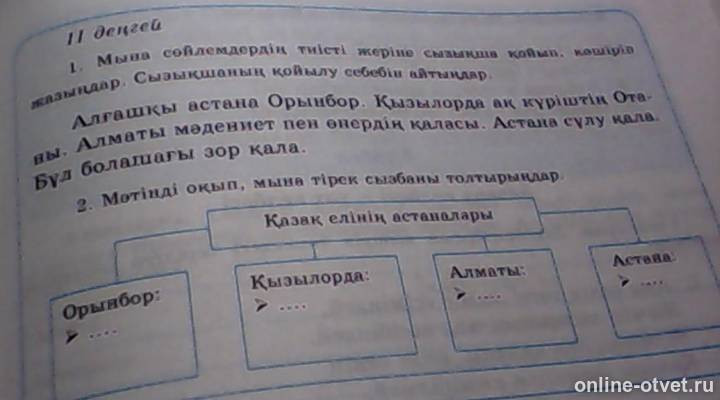 II деңгей
1. Мына сөйлемдердің тиісті жеріне сызықша қойып, көшіріп
жазыңдар. Сызықшаның қойылу себебін айтыңдар.
Алғашқы астана Орынбор. Қызылорда ақ күріштің Ота-
ны. Алматы мәдениет пен өнердің қаласы. Астана сұлу қала.
Бұл болашағы зор қала.
2. Мәтінді оқып, мына тірек сызбаны толтырыңдар.
Қазақ елінің астаналары
Орынбор:
➢ ....
Қызылорда:
➢ ....
Алматы:
➢ ....
Астана:
➢ ....
online-otvet.ru